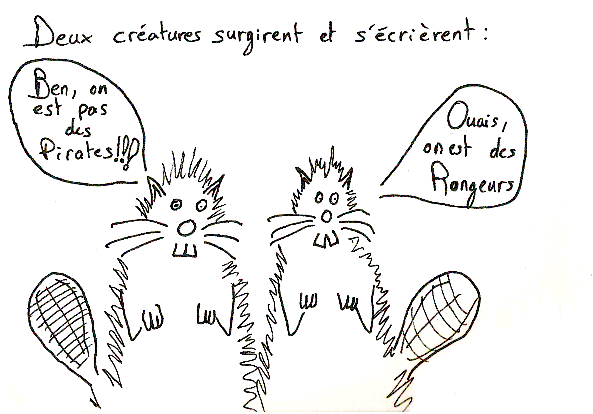 Deux créatures surgirent et s'écrièrent :
Ben, on
est pas
des
Pirates!!!
Ouais,
on est des
Rongeurs